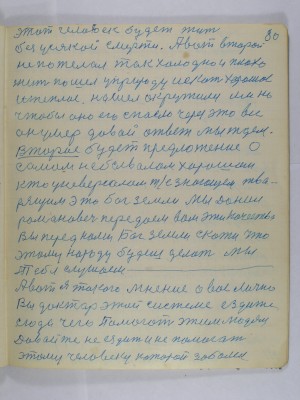 этот человек будет жит
без усякой смерти. А вот второй
80
не пожелал так холодно и плохо
жит пошел у природу искат хорошое
и теплое, нашел окружили им но
чтобы оно его спасло через это все
он умер давай ответ мы ждем.
Второе будет предложение о
самом небывалом хорошом
кто универсалом т/е знающем тва-
рящим это бог земли мы Даним
романович передоем вам эти качества
Вы перед нами Бог земли скажи что
этому народу будеш делат мы
тебя слушаем
А вот я такого мнение о вас лично
Вы доктар этой системе ездите
сюда чего помогат этим людям
Давайте не ездит и не помогат
этому человеку которой заболел